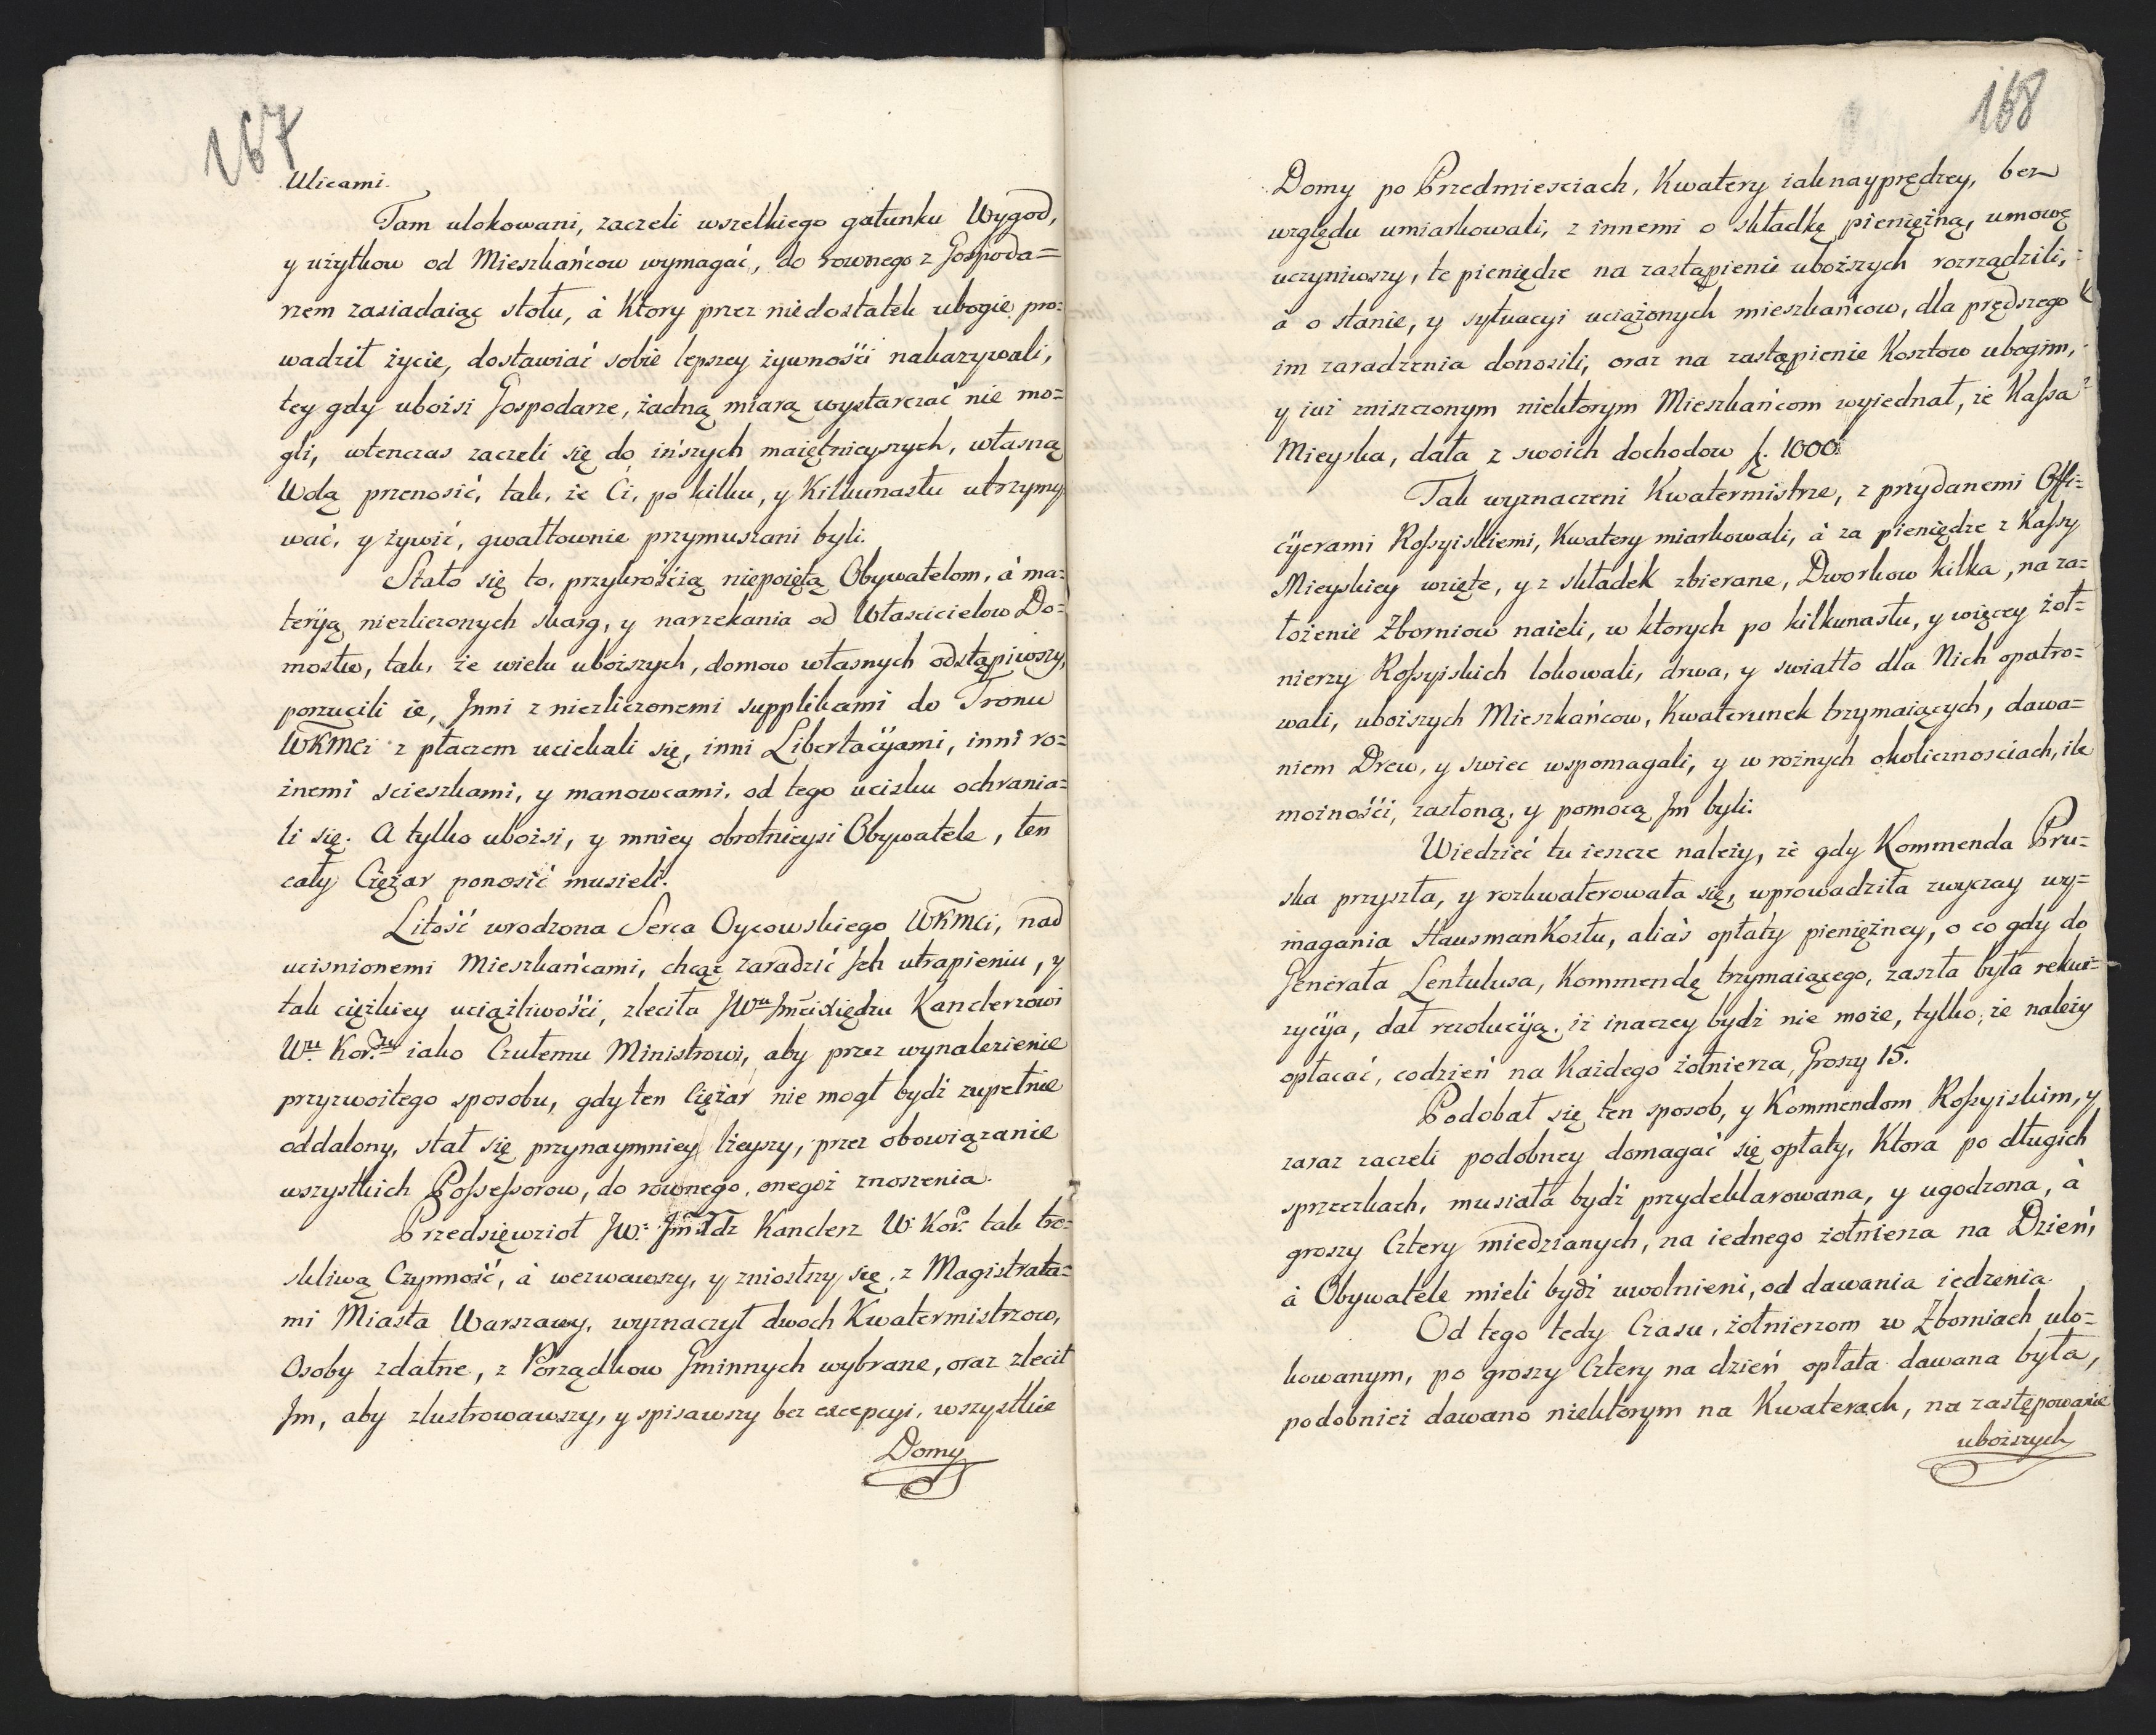 167
Ulicami.
Tam ulokowani, zaczeli wszelkiego gatunku Wygod,
y użytkow od Mieszkańcow wymagać, do rownego z Gospoda=
rzem zasiadaiąc stołu, à Ktory przez niedostatek ubogie pro=
wadził życie, dostawiać sobie lepszey żywnośći nakazywali,
tey gdy uboźsi Gospodarze, żadną miarą wystarczać nie mo=
gli, wtenczas zaczeli się do ińszych maiętnieyszych, własną
Wolą przenosić, tak, że Ci, po kilku, y Kilkunastu utrzymy=
wać, y żywić, gwałtownie przymuszani byli.
Stało się to, przykrośćią niepoiętą Obywatelom, à ma=
teryją niezliczonych skarg, y narzekania od Właścicielow Do=
mostw, tak, że wielu uboższych, domow własnych odstąpiwszy,
porzucili ie, Jnni z niezliczonemi supplikami do Tronu
WKMCi z płaczem uciekali się, inni Libertacyjami, inni ro=
żnemi scieszkami, y manowcami, od tego ucisku ochrania=
li się. A tylko uboźsi, y mniey obrotnieysi Obywatele, ten
cały Ciężar ponosić musieli.
Litość wrodzona Serca Oycowskiego WKMCi, nad
ucisnionemi Mieszkańcami, chcąc zaradzić Jch utrapieniu, y
tak ciężkiey uciążliwośći, zleciła JWmu Jmci Xiędzu Kanclerzowi
Wmu Kor.mu iako Czułemu Ministrowi, aby przez wynalezienie
przyzwoitego sposobu, gdy ten Ciężar nie mogł bydź zupełnie
oddalony, stał się przynaymniey lżeyszy, przez obowiązanie
wszystkich Possessorow, do rownego, onegoż znoszenia.
Przedsięwzioł JW: Jm Xdz Kanclerz W: Kor: tak tro=
skliwą Czynność, à wezwawszy, y zniosłszy się, z Magistrata=
mi Miasta Warszawy, wyznaczył dwoch Kwatermistrzow,
Osoby zdatne, z Porządkow Gminnych wybrane, oraz zlecił
Jm, aby zlustrowawszy, y spisawszy bez excepcyi, wszystkie
Domy
168
Domy po Przedmiesciach, Kwatery iaknayprędzey, bez
względu umiarkowali, z innemi o składkę pieniężną, umowę
uczyniwszy, te pieniędze na zastąpienie uboższych rozrządzili,
à o stanie, y sytuacyi uciążonych mieszkańcow, dla prędszego
im zaradzenia donosili, oraz na zastąpienie Kosztow ubogim,
y iuż zniszczonym niektorym Mieszkańcom wyiednał, że Kassa
Mieyska, dała z swoich dochodow f. 1000.
Tak wyznaczeni Kwatermistrze, z przydanemi Offi=
cyerami Rossyiskiemi, Kwatery miarkowali, à za pieniędze z Kassy
Mieyskiey wzięte, y z składek zbierane, Dworkow kilka, na za=
łożenie Zborniow naieli, w ktorych po kilkunastu, y więcey żoł=
nierzy Rossyiskich lokowali, drwa, y swiatło dla Nich opatro=
wali, uboższych Mieszkańcow, Kwaterunek trzymaiących, dawa=
niem Drew, y swiec wspomagali, y w rożnych okolicznosciach, ile
możnośći, zasłoną, y pomocą Jm byli.
Wiedzieć tu ieszcze należy, że gdy Kommenda Pru=
ska przyszła, y rozkwaterowała się, wprowadziła zwyczay wy=
magania HausmanKosztu, aliàs opłaty pieniężney, o co gdy do
Generała Lentulusa, Kommendę trzymaiącego, zaszła była rekwi=
zycyja, dał rezolucyją, iż inaczey bydź nie może, tylko, że należy
opłacać, codzień na Każdego żołnierza, Groszy 15.
Podobał się ten sposob, y Kommendom Rossyiskim, y
zaraz zaczeli podobney domagać się opłaty, Ktora po długich
sprzeczkach, musiała bydź przydeklarowana, y ugodzona, à
groszy Cztery miedzianych, na iednego żołnierza na Dzień,
à Obywatele mieli bydź uwolnieni, od dawania iedzenia.
Od tego tedy Czasu, żołnierzom w Zborniach ulo=
kowanym, po groszy Cztery na dzień opłata dawana była,
podobnież dawano niektorym na Kwaterach, na zastępowanie
uboższych